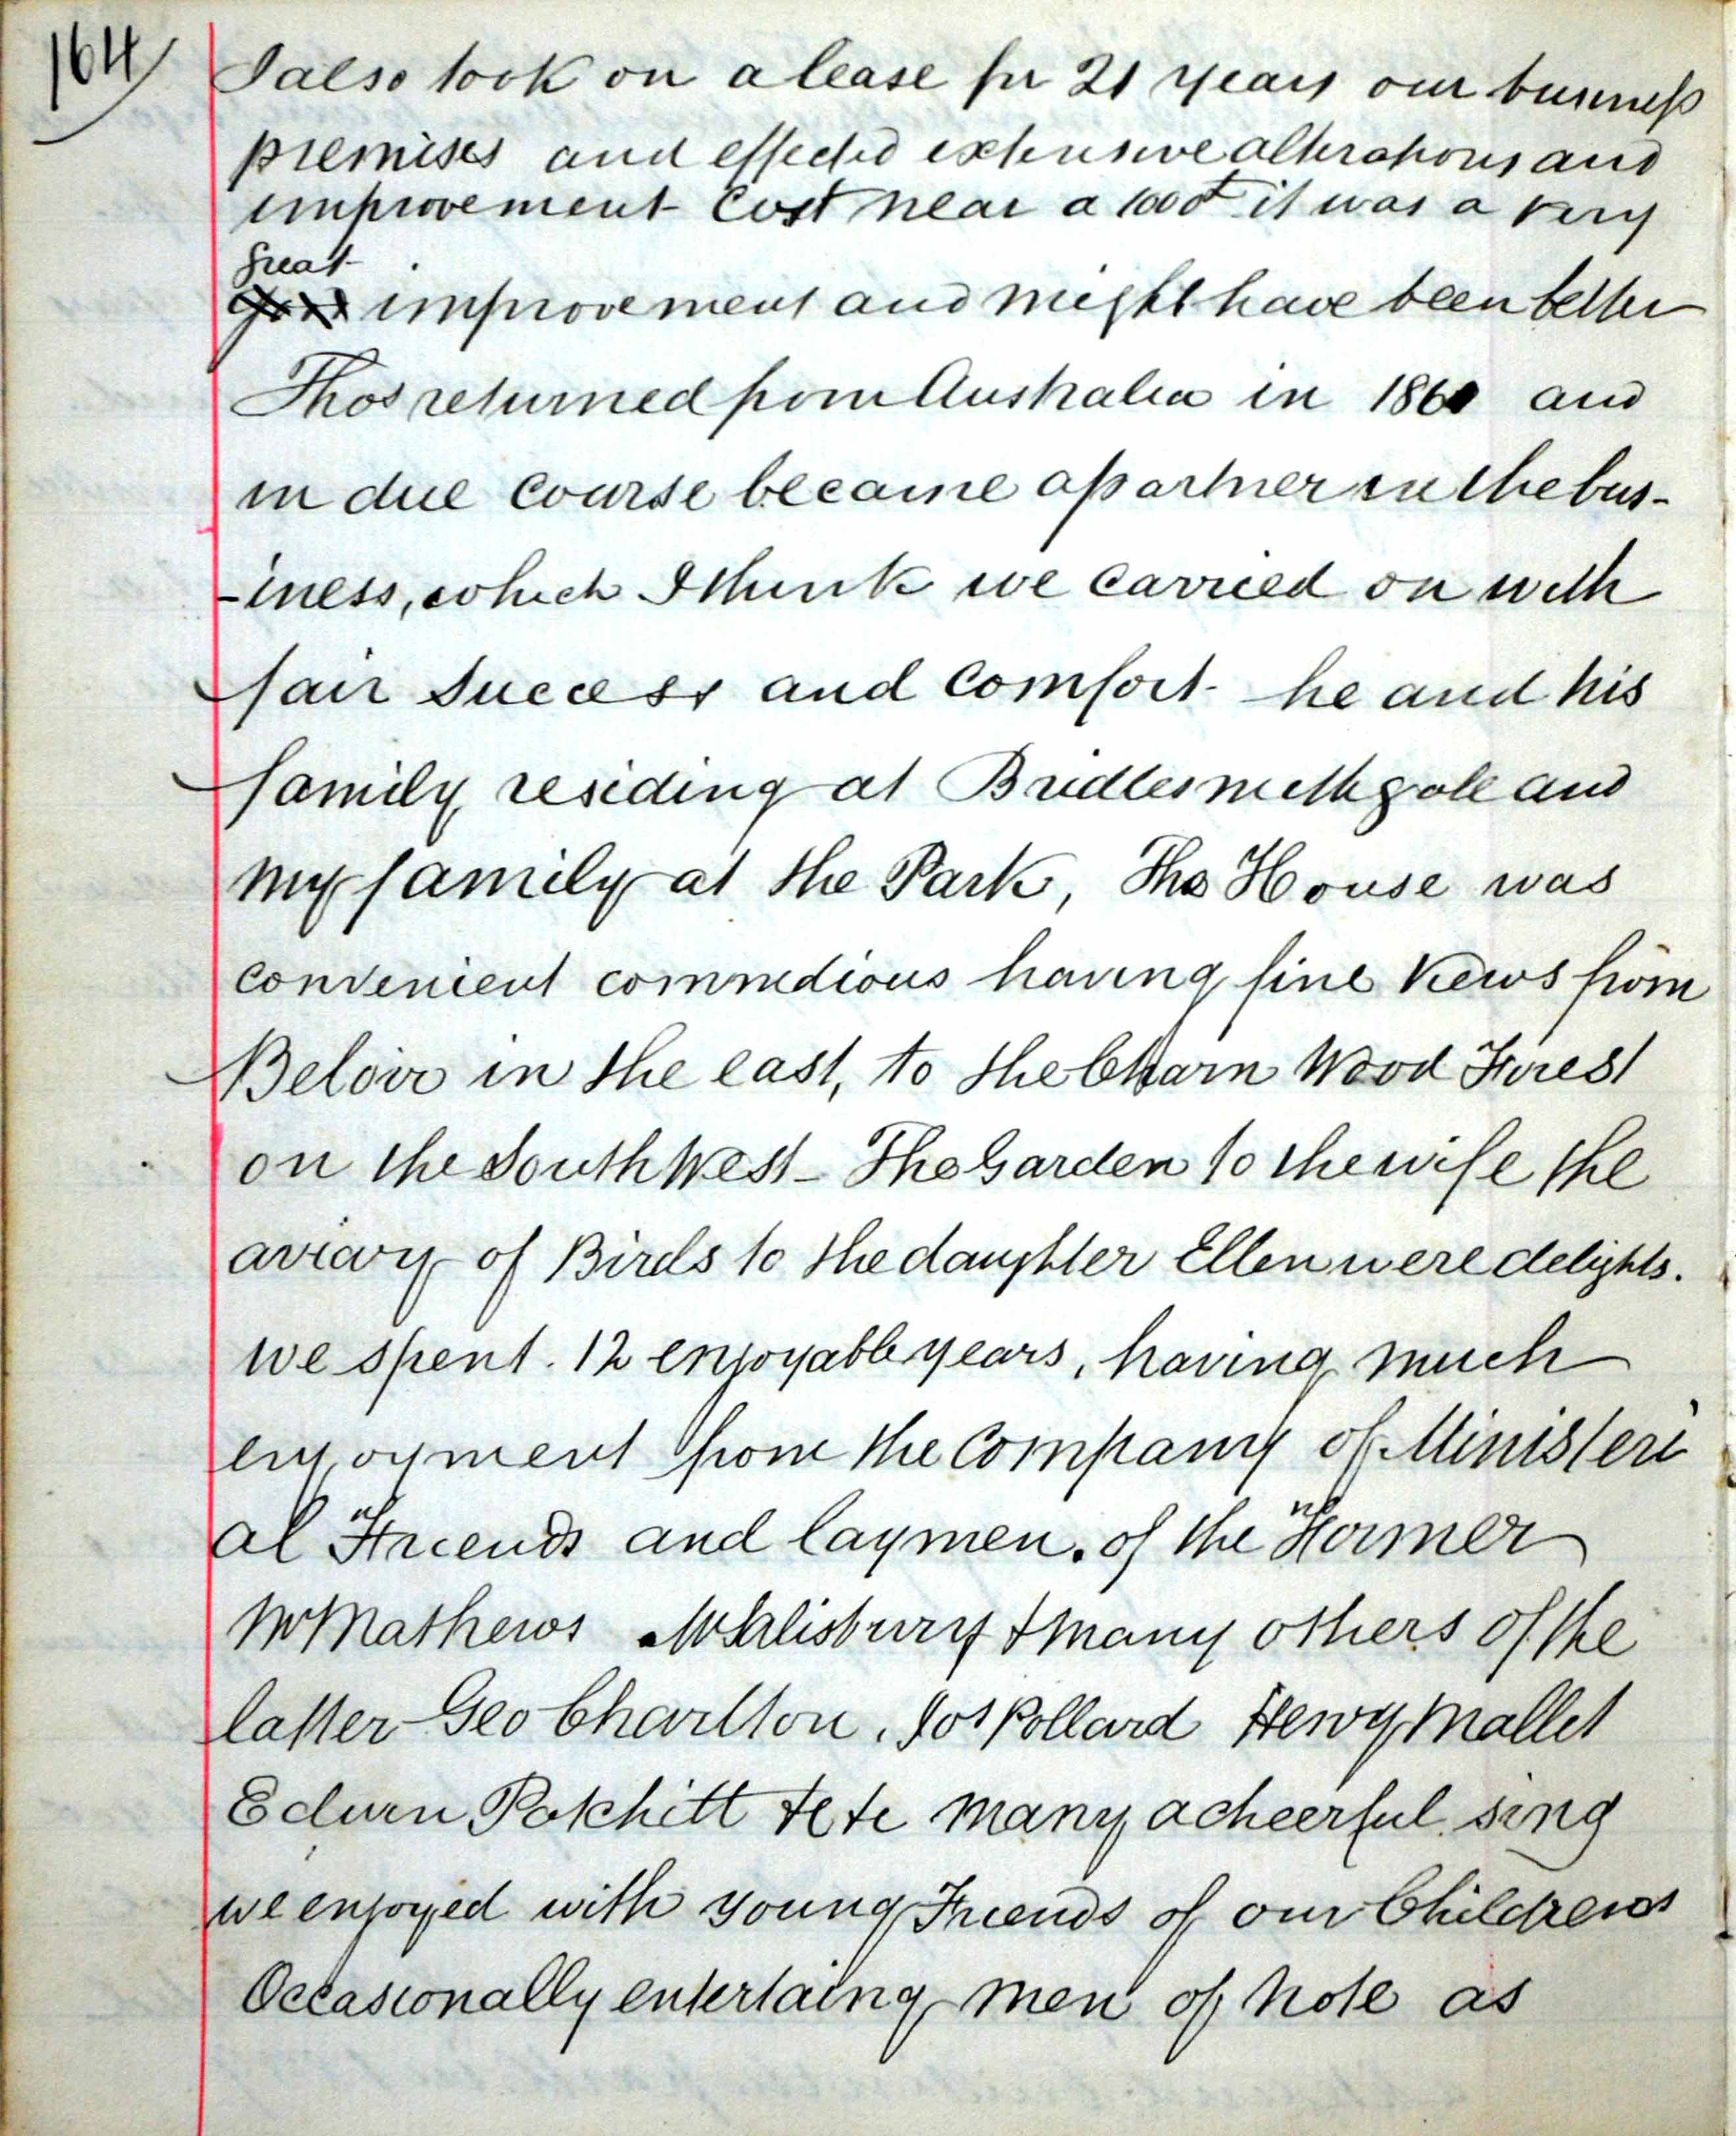 164
I also took on a lease for 21 years our business
premises and effected extensive alterations and
improvement cost near a 1000£ it was a very
great
good improvement and might have been better
Thos returned from Australia in 1860 and
in due course became a partner in the bus-
-iness, which I think we carried on with
fair success and comfort - he and his
family residing at Bridlesmithgate and
my family at the Park, The House was
convenient commedious having fine views from
Belvoir in the east, to the Charn Wood Forest
on the South West - The Garden to the wife the
aviary of Birds to the daughter Ellen were delights.
we spent. 12 enjoyable years, having much
enjoyment from the company of Ministeri
al Friends and laymen. of the Former
Mr Mathews Mr Salisbury & many others of the
latter Geo Charlton, Jos Pollard Henry Mallet
Edwin Patchitt &c &c many a cheerful sing
we enjoyed with young Friends of our Childrens
Occasionally entertaing men of note as